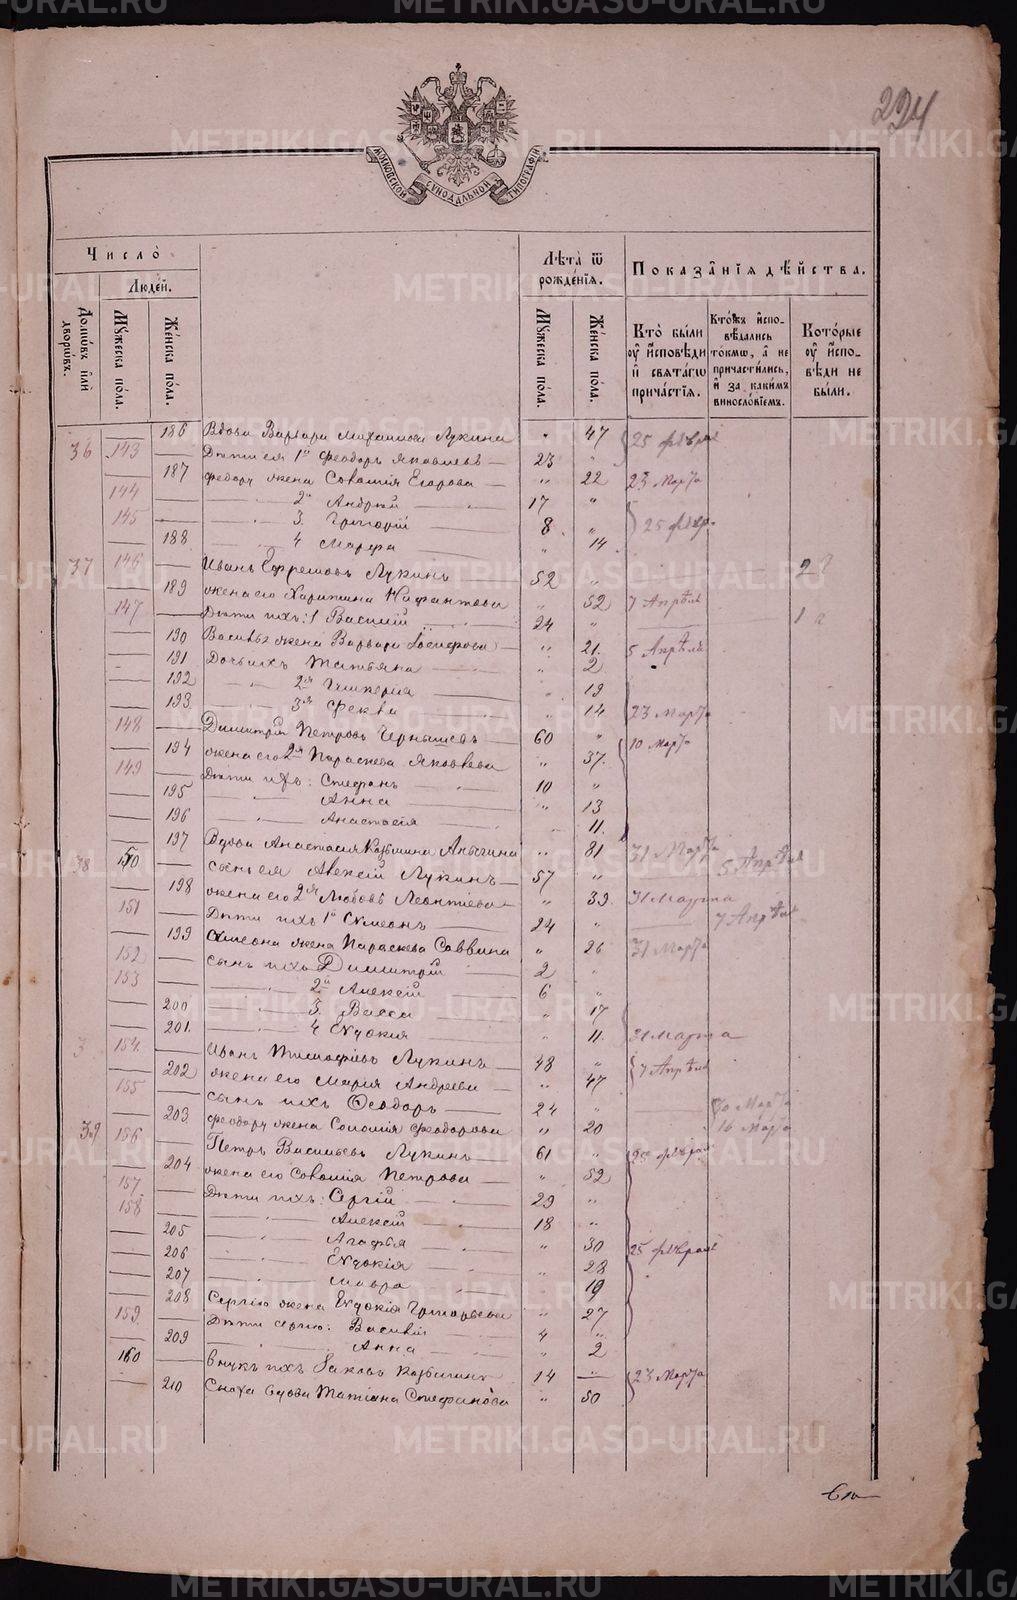 224
МОСКОВСКОЙ СУНОДАЛЬНОЙ ТИПОГРАФІИ
Число
Людей.
Домовъ или дворовъ.
Мужеска пола.
Женска пола.
Лѣта ѿ рожденія.
Мужеска пола.
Женска пола.
Показанія дѣйства.
Кто были у исповѣди и святаго причастія.
Кто жъ исповѣдались токмо, а не причастились, и за какимъ винословіемъ.
Которые у исповѣди не были.
186 Вдова Варвара Михаилова Лукина " 47 25 февраля
36 143 Дѣти ея 1й Феодоръ Яковлевъ 23 "
187 Феодора жена Соломія Егорова " 22 23 Марта
144 2й Андрей 17 "
145 3. Григорій 8 " 25 февр.
188 4 Марфа " 14
37 146 Иванъ Ефремовъ Лукинъ 52 " 2
189 жена его Харитина " 52 7 Апрѣля
147 Дѣти ихъ: 1 Василій 24 " 1
190 жена Варвара Іосифова " 21. 5 Апрѣля
191 Дочь ихъ Татьяна " 2
192 2я " 19
193. 3я Фекла " 14 23 Марта
148 Димитрій Петровъ Чернышевъ 60 " 10 Марта
194 жена его 2я Параскева Яковлева " 37.
149 Дѣти ихъ: Стефанъ 10 "
195 Анна " 13
196 Анастасія 11.
197 Вдова Анастасія Козьмина " 81 31 Марта
38 150 сынъ ея Алексій Лукинъ 57 " 5 Апрѣля
198 жена его 2я Любовь Леонтіева " 39. 31 Марта
151 Дѣти ихъ 1й Симеонъ 24 " 7 Апрѣля
199 Симеона жена Параскева Саввина " 26 31 Марта
152 сынъ ихъ Димитрій 2 "
153 2й Алексій 6 "
200 3. Васса " 17
201. 4 Евдокія " 11. 31 Марта
154. Иванъ Тимофѣевъ Лукинъ 48 " 7 Апрѣля
202 жена его Марія Андреева " 47
155 сынъ ихъ Ѳеодоръ 24 " Марта
203. Феодора жена Соломія Феодорова " 20 16 Марта
39 156 Петръ Васильевъ Лукинъ 61 " 25 февраля
204 жена его Соломія Петрова " 52
157 Дѣти ихъ: Сергій 29 "
158 Алексій 18 "
205 Агафья " 30 25 февраля
206 Евдокія " 23
207 Мавра " 19
208 Сергія жена Евдокія Григорьева " 27
159. Дѣти Сергія: Василій 4 "
209 Анна " 2
160 внукъ ихъ 14 — 23 Марта
210 Сноха вдова Татіана Стефанова " 50
METRIKI.GASO-URAL.RU